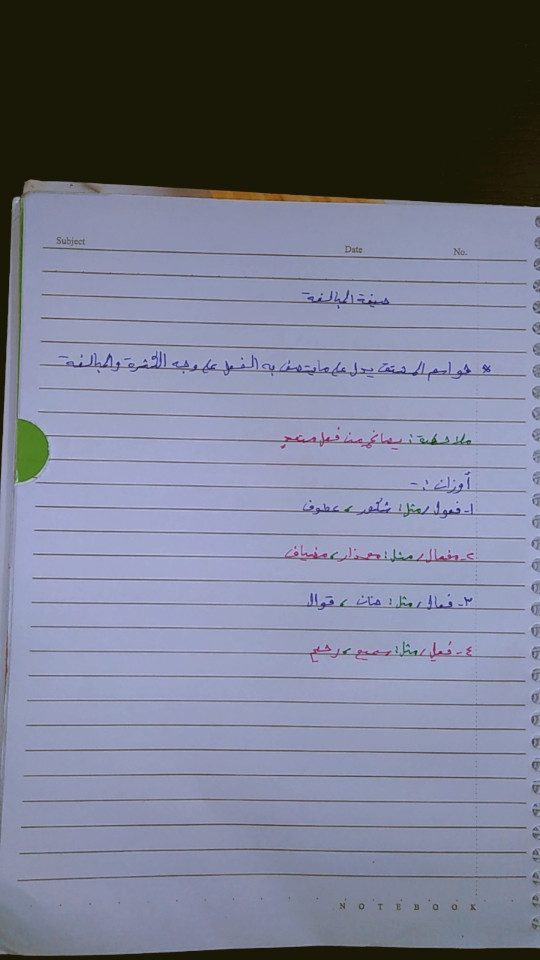 Subject Date No.
صيغة المبالغة
* هو اسم المشتق يدل على ما يتصف به الفعل على وجه الكثرة والمبالغة
ملاحظة: يصاغ من فعل متعدٍ
أوزان :-
١- فعول / مثل: شكور، عطوف
٢- مفعال / مثل: مهذار، مضياف
٣- فعال / مثل: حنان، قوال
٤- فعيل / مثل: سميع، رحيم
NOTEBOOK